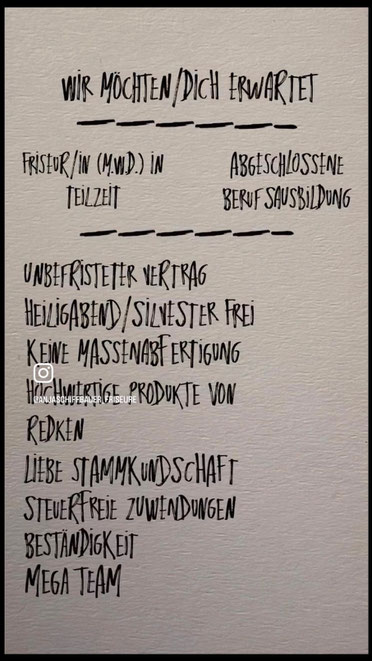 WIR MÖCHTEN/DICH ERWARTET
FRISEUR/IN (M.W.D.) IN
TEILZEIT
ABGESCHLOSSENE
BERUFSAUSBILDUNG
UNBEFRISTETER VERTRAG
HEILIGABEND/SILVESTER FREI
KEINE MASSENABFERTIGUNG
HOCHWERTIGE PRODUKTE VON
@ANJASCHIFFBAUER_FRISEURE
REDKEN
LIEBE STAMMKUNDSCHAFT
STEUERFREIE ZUWENDUNGEN
BESTÄNDIGKEIT
MEGA TEAM